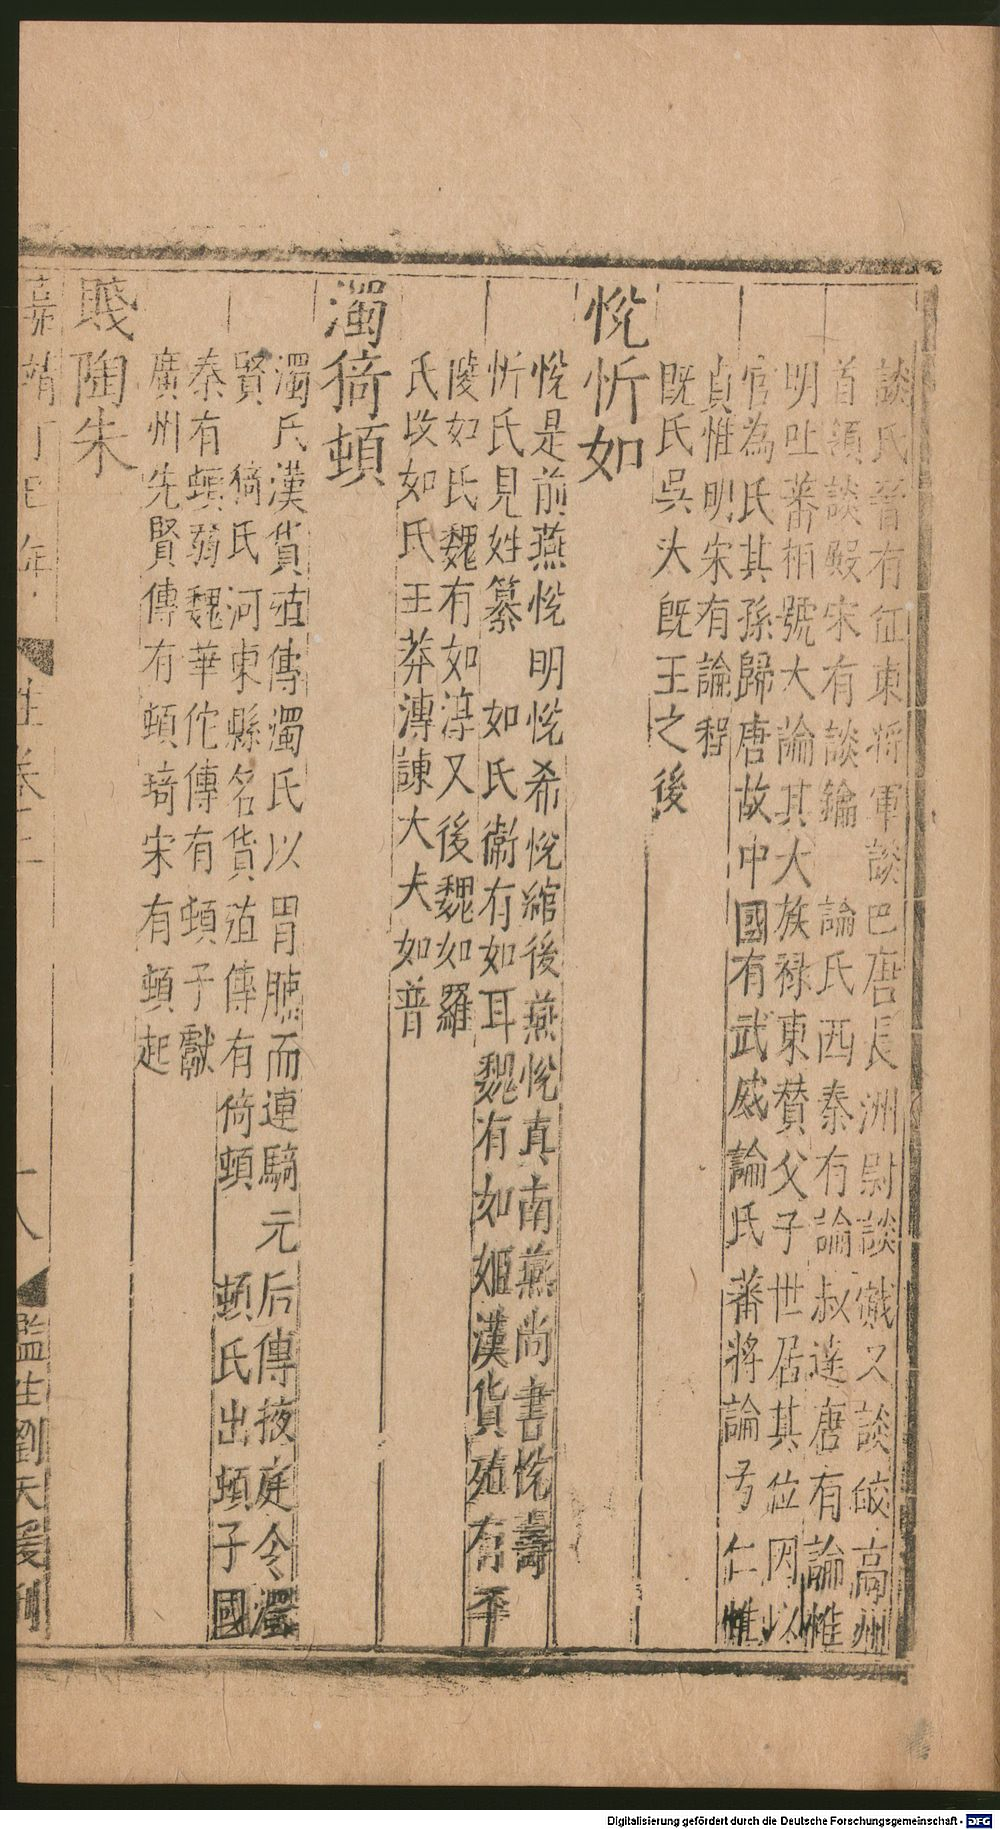 談氏晉有征東將軍談巴唐長洲尉談戭又談皎高州
首領談殿宋有談鑰　論氏西秦有論叔達唐有論惟
明吐蕃相號大論其大族祿東贊父子世居其位因以
官為氏其孫歸唐故中國有武威論氏蕃將論弓仁惟
貞惟明宋有論程
既氏吳大既王之後
悅忻如
悅是前燕悅明悅希悅綰後燕悅真南燕尚書悅壽
忻氏見姓纂　如氏衛有如耳魏有如姬漢貨殖有季
陵如氏魏有如淳又後魏如羅
氏改如氏王莽漙諌大夫如普
濁猗頓
濁氏漢貨殖傳濁氏以胃脯而連騎元后傳掖庭令濁
賢　猗氏河東縣名貨殖傳有倚頓　頓氏出頓子國
秦有頓弱魏華佗傳有頓子獻
廣州先賢傳有頓琦宋有頓起
賤陶朱
靖丁年
姓卷
十八
監生劉天爰刊
Digitalisierung gefördert durch die Deutsche Forschungsgemeinschaft - DFG